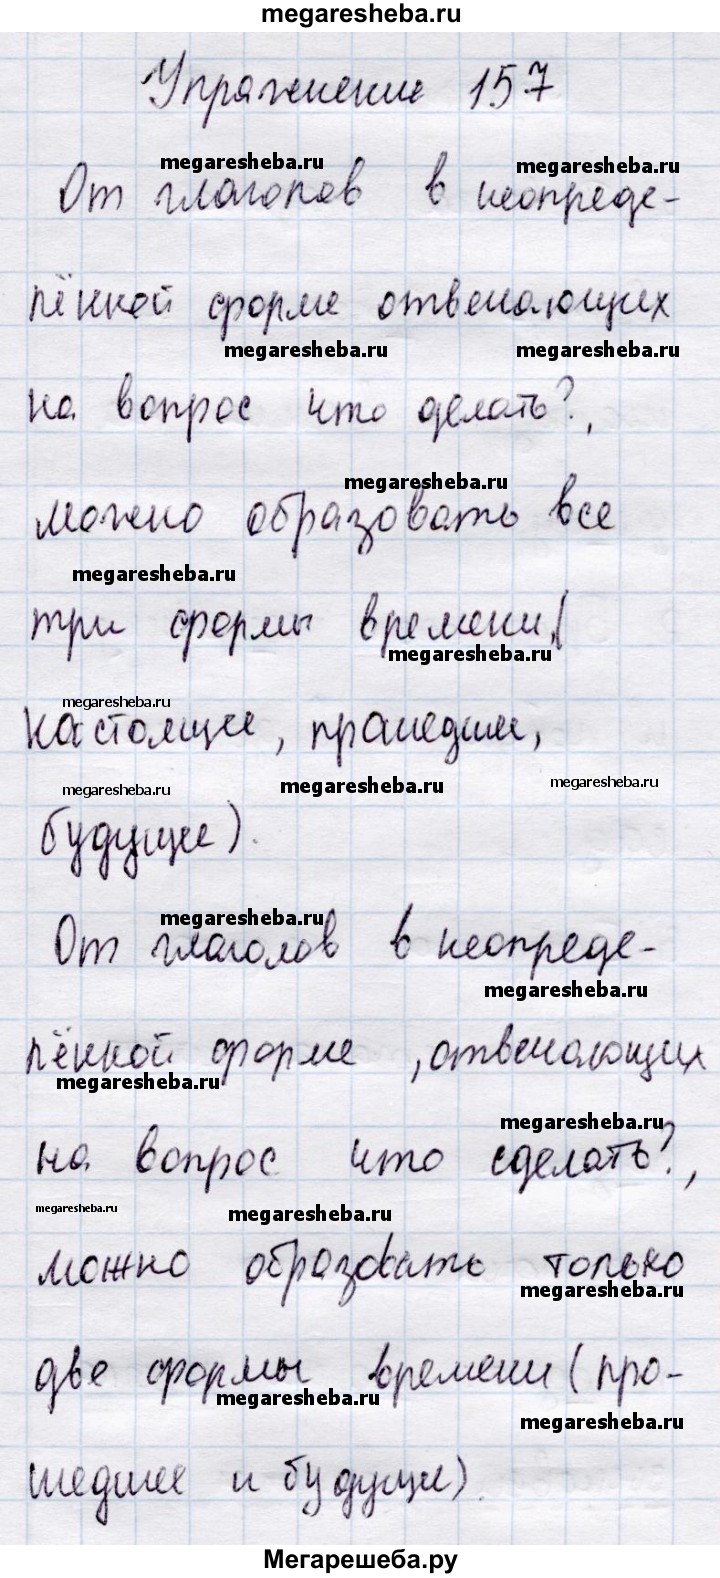 megaresheba.ru
Упражнение 157
megaresheba.ru megaresheba.ru
От глаголов в неопреде-
лённой форме отвечающих
megaresheba.ru megaresheba.ru
на вопрос что делать?,
megaresheba.ru
можно образовать все
megaresheba.ru
три формы времени (
megaresheba.ru
megaresheba.ru
настоящее, прошедшее,
megaresheba.ru megaresheba.ru megaresheba.ru
будущее).
megaresheba.ru
От глаголов в неопреде-
megaresheba.ru
лённой форме, отвечающих
megaresheba.ru
megaresheba.ru
на вопрос что сделать?,
megaresheba.ru megaresheba.ru
можно образовать только
megaresheba.ru
две формы времени (про-
megaresheba.ru
megaresheba.ru
шедшее и будущее).
Мегарешеба.ру